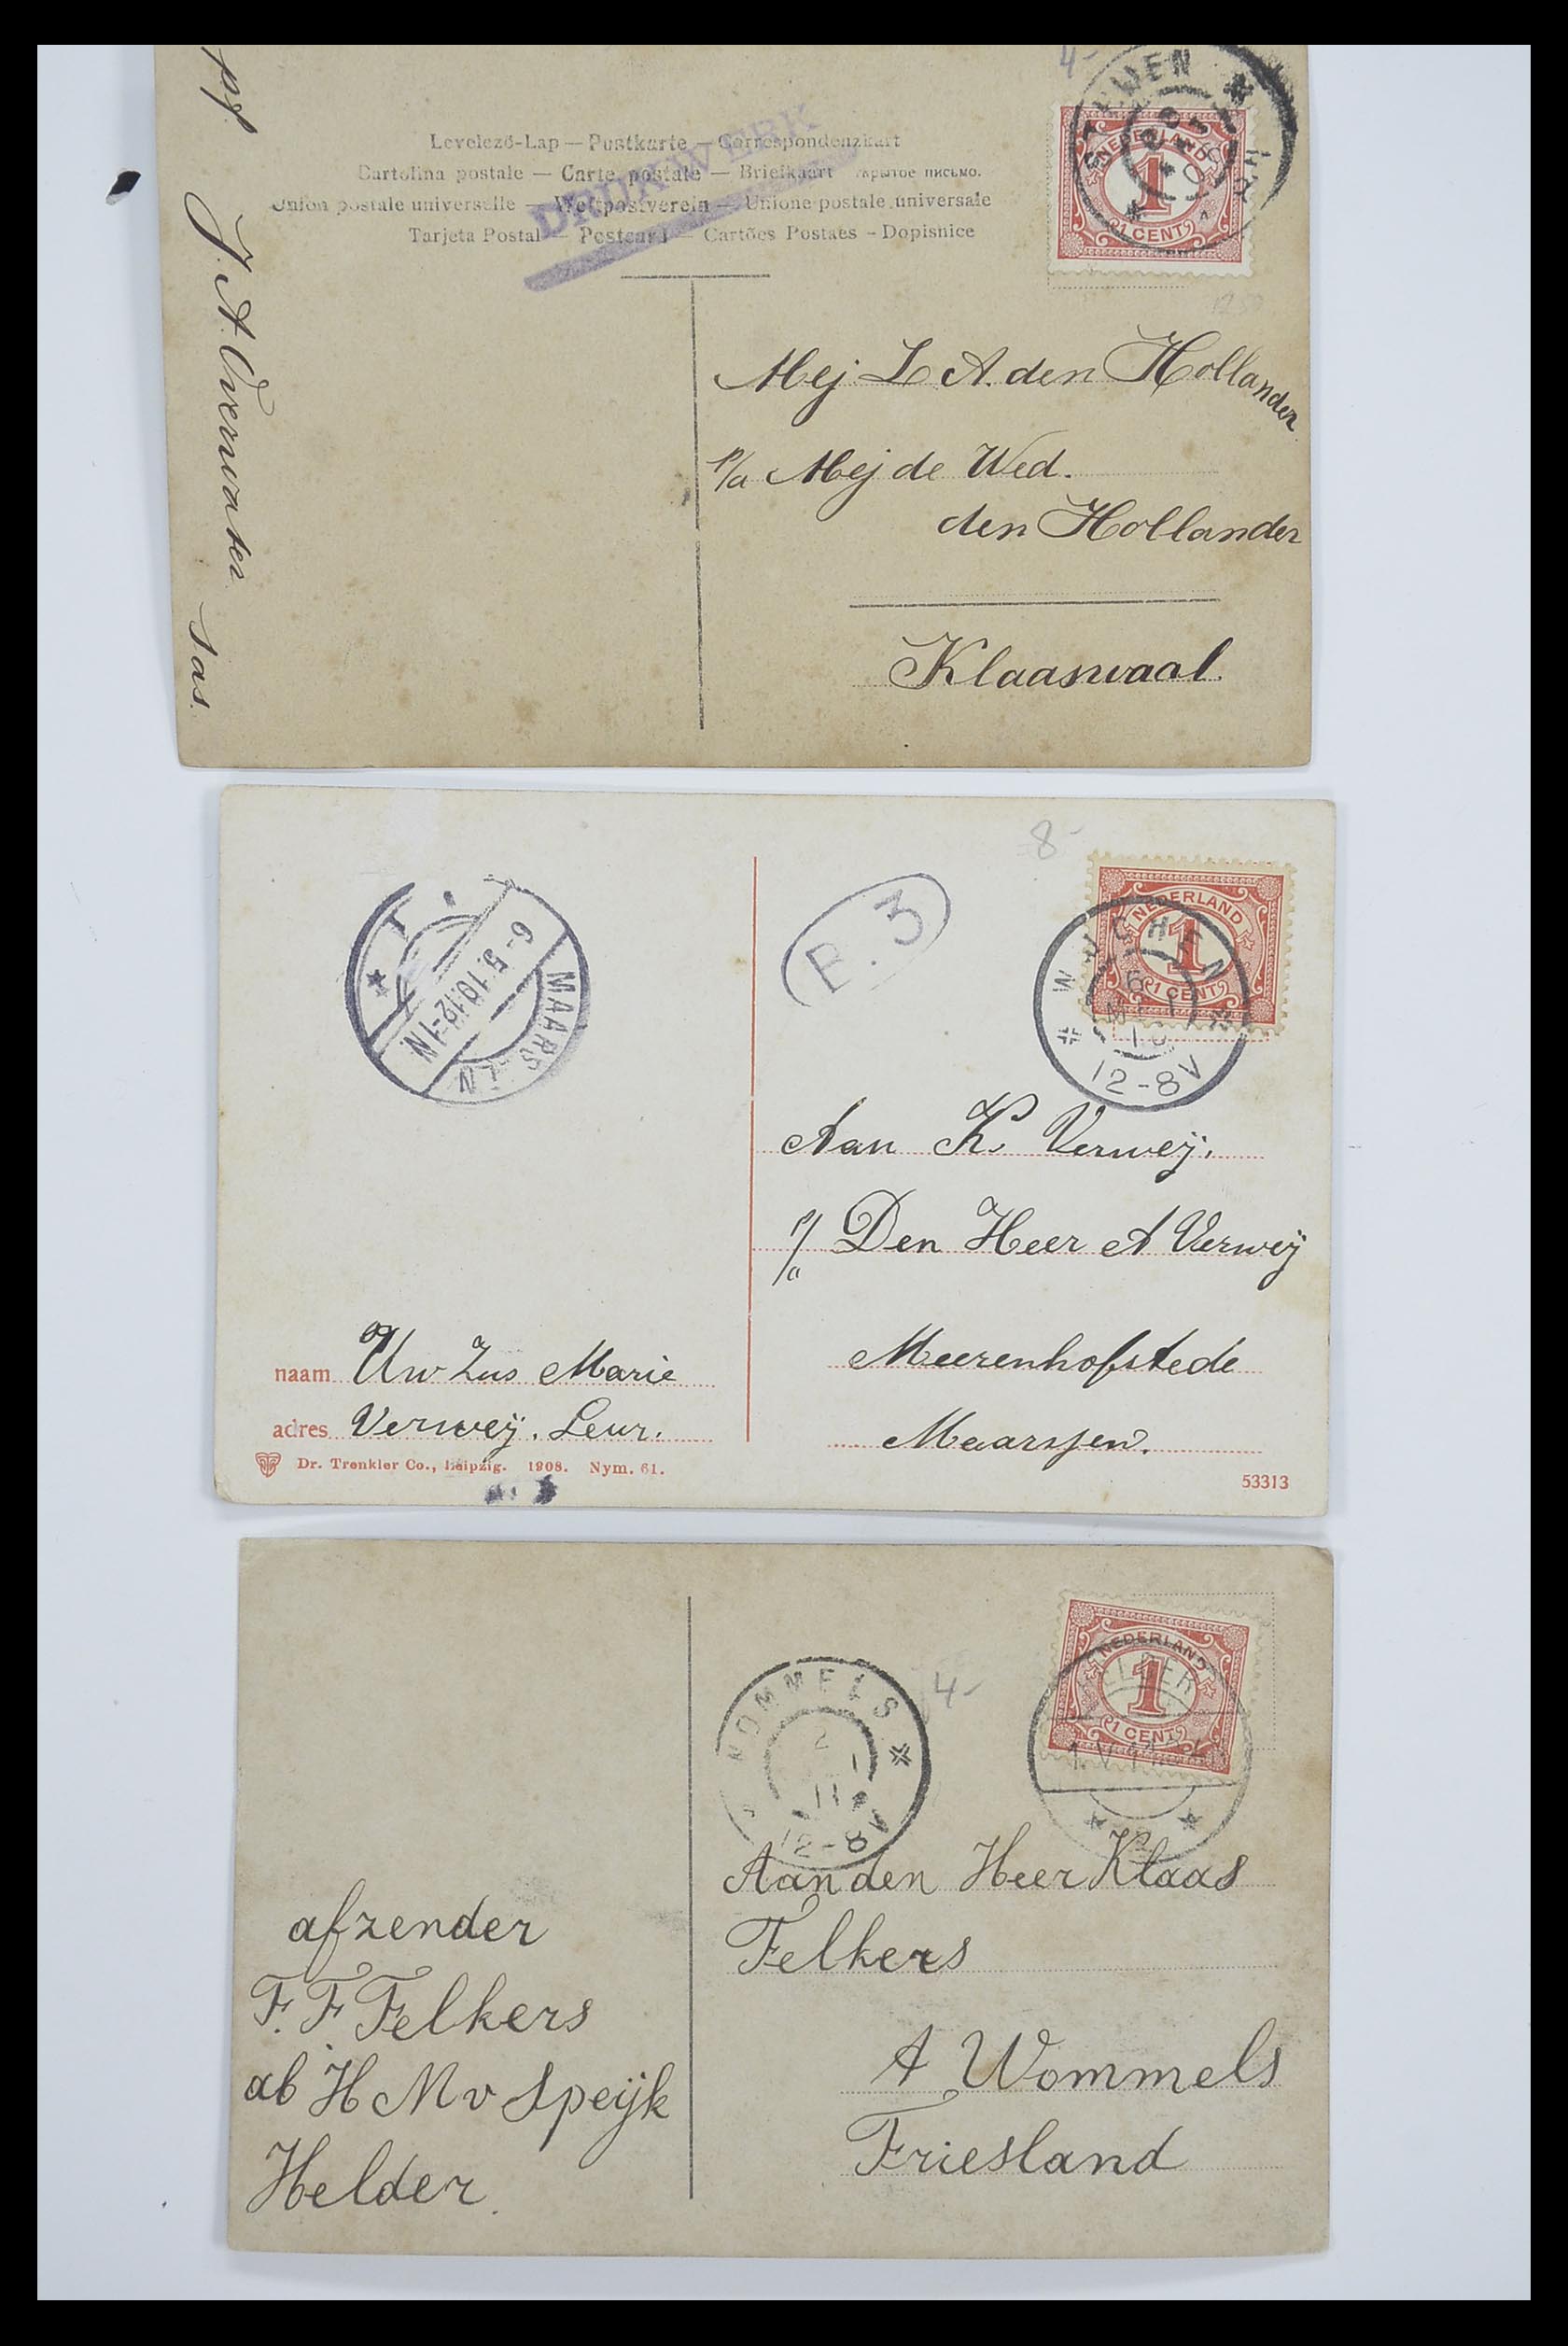 4-
Levelező-Lap — Postkarte — Correspondenzkart
Cartolina postale — Carte postale — Briefkaart письмо.
Union postale universelle — Weltpostverein — Unione postale universale
Tarjeta Postal — Postcard — Cartões Postaes - Dopisnice
DRUKWERK
NEDERLAND
1
1 CENT
J. A. Overwater
Sas.
Mej. L A. den Hollander
p/a Mej de Wed.
den Hollander
Klaaswaal.
8-
B. 3
MAARSSEN
6-5.10.12-1N
NEDERLAND
1
1 CENT
WIJCHEN
12-8V
Aan K. Verweij.
p/a Den Heer A Verweij
Meerenhofstede
Maarssen.
naam Uw Zus Marie
adres Verweij. Leur.
Dr. Trenkler Co., Leipzig. 1908. Nym. 61.
53313
WOMMELS
2
11
12-8V
4-
NEDERLAND
1
1 CENT
HELDER
Aan den Heer Klaas
Felkers
A Wommels
Friesland
afzender
F. F. Felkers
ab H M v Speijk
Helder.